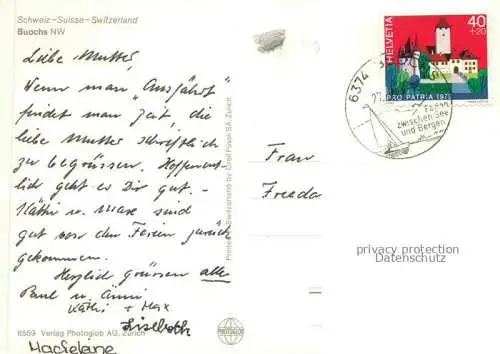 Schweiz-Suisse-Switzerland
Buochs NW
Liebe Mutter,
Wenn man "Ausfährt"
findet man Zeit, die
liebe Mutter schriftlich
zu begrüssen. Hoffent-
lich geht es Dir gut.
Käthi u. Max sind
gut von den Ferien zurück
gekommen.
Herzlich grüssen alle
Paul u. Anni
Käthi + Max
Liselotte
Madeleine
6559 Verlag Photoglob AG, Zürich
PHOTOGLOB
Printed in Switzerland by Orell Füssli SA, Zürich
Frau
Frieda
HELVETIA
40
+20
PRO PATRIA 197
6374
zwischen See
und Bergen
privacy protection
Datenschutz